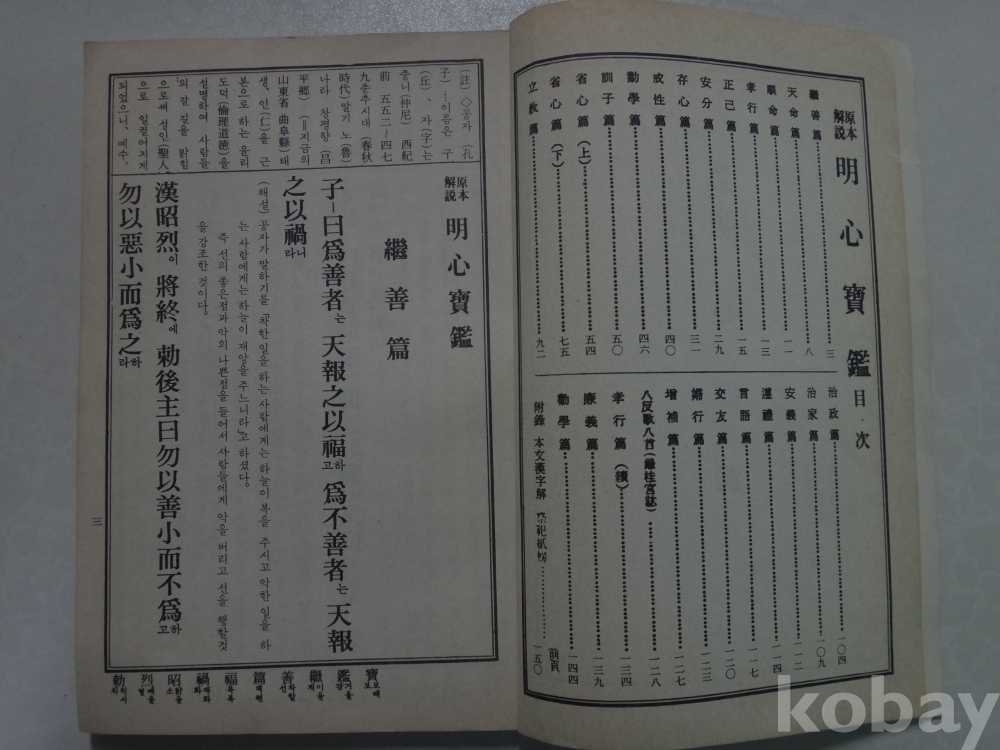 原本解説 明心寶鑑 目・次
繼善篇 三
天命篇 八
順命篇 一一
孝行篇 一三
正己篇 一五
安分篇 二九
存心篇 三一
戒性篇 四〇
勤學篇 四六
訓子篇 五〇
省心篇(上) 五四
省心篇(下) 七五
立敎篇 九二
治政篇 一〇四
治家篇 一〇九
安義篇 一一二
遵禮篇 一一四
言語篇 一一七
交友篇 一二〇
婦行篇 一二三
增補篇 一二七
八反歌八首(錄桂宮誌) 一二八
孝行篇(續) 一三四
廉義篇 一三九
勸學篇 一四四
附錄 本文漢字解 祭祀紙榜 一五〇
(註) ◇공자 (孔
子)…이름은 구
(丘)、자(字)는
중니(仲尼) 西紀
前 五五二-四七
九춘추시대 (春秋
時代)말기 노(魯)
나라 창평향 (昌
平鄕) (=지금의
山東省 曲阜縣)태
생、인(仁)을 근
본으로 하는 윤리
도덕(倫理道德)을
설명하여 사람들
의 갈 길을 밝힘
으로써 성인(聖人)
으로 일컬어지게
되었으니、예수、
原本解説 明心寶鑑
繼善篇
子ㅣ曰爲善者는 天報之以福하고 爲不善者는 天報
之以禍니라
(해설) 공자가 말하기를 「착한 일을 하는 사람에게는 하늘이 복을 주시고 악한 일을 하
는 사람에게는 하늘이 재앙을 주느니라」고 하셨다。
즉 선의 좋은점과 악의 나쁜점을 들어서 사람들에게 악을 버리고 선을 행할것
을 강조한 것이다。
漢昭烈이 將終에 勅後主曰勿以善小而不爲하고
勿以惡小而爲之하라
寶 보배 보
鑑 거울 감
繼 이을 계
善 착할 선
篇 책편
福 복복
禍 재화 화
昭 밝을 소
烈 매울 렬
勅 칙서 칙
三
kobay